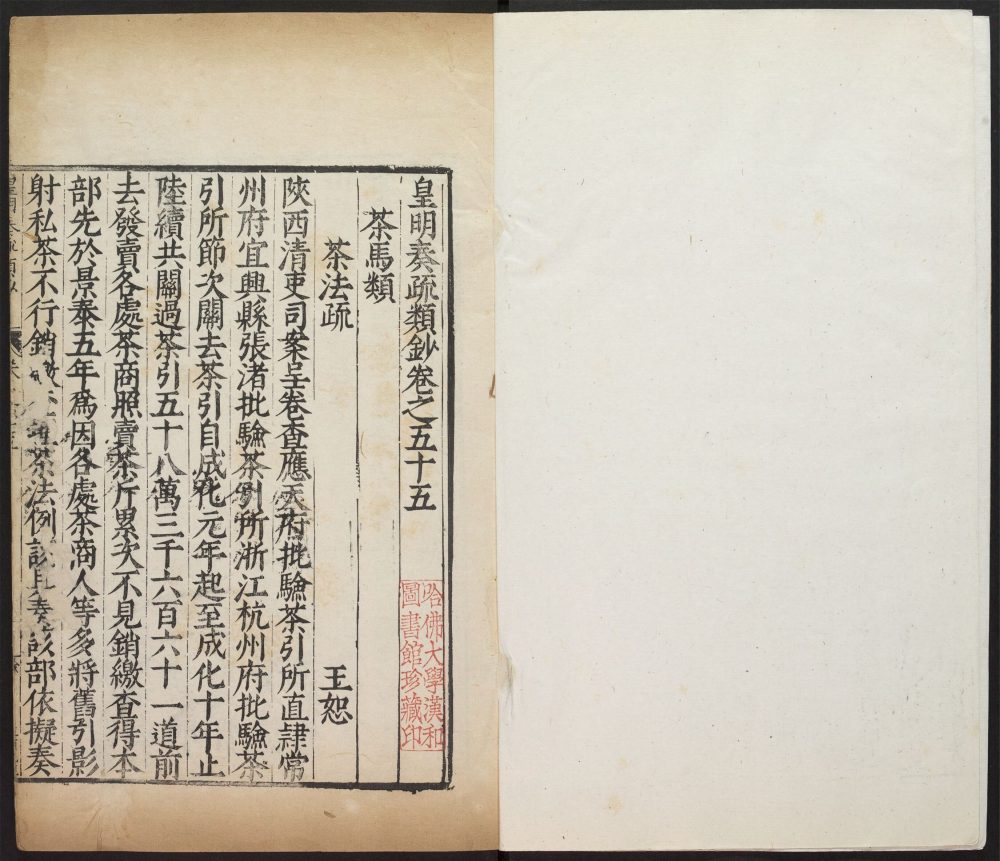 皇明奏疏類鈔卷之五十五
哈佛大學漢和
圖書館珍藏印
茶馬類
茶法疏 王恕
陝西清吏司案呈卷查應天府批驗茶引所直隷常
州府宜興縣張渚批驗茶引所浙江杭州府批驗茶
引所節次關去茶引自成化元年起至成化十年止
陸續共關過茶引五十八萬三千六百六十一道前
去發賣各處茶商照賣茶斤累次不見銷繳查得本
部先於景泰五年爲因各處茶商人等多將舊引影
射私茶不行銷 茶法例 奏 部依擬奏